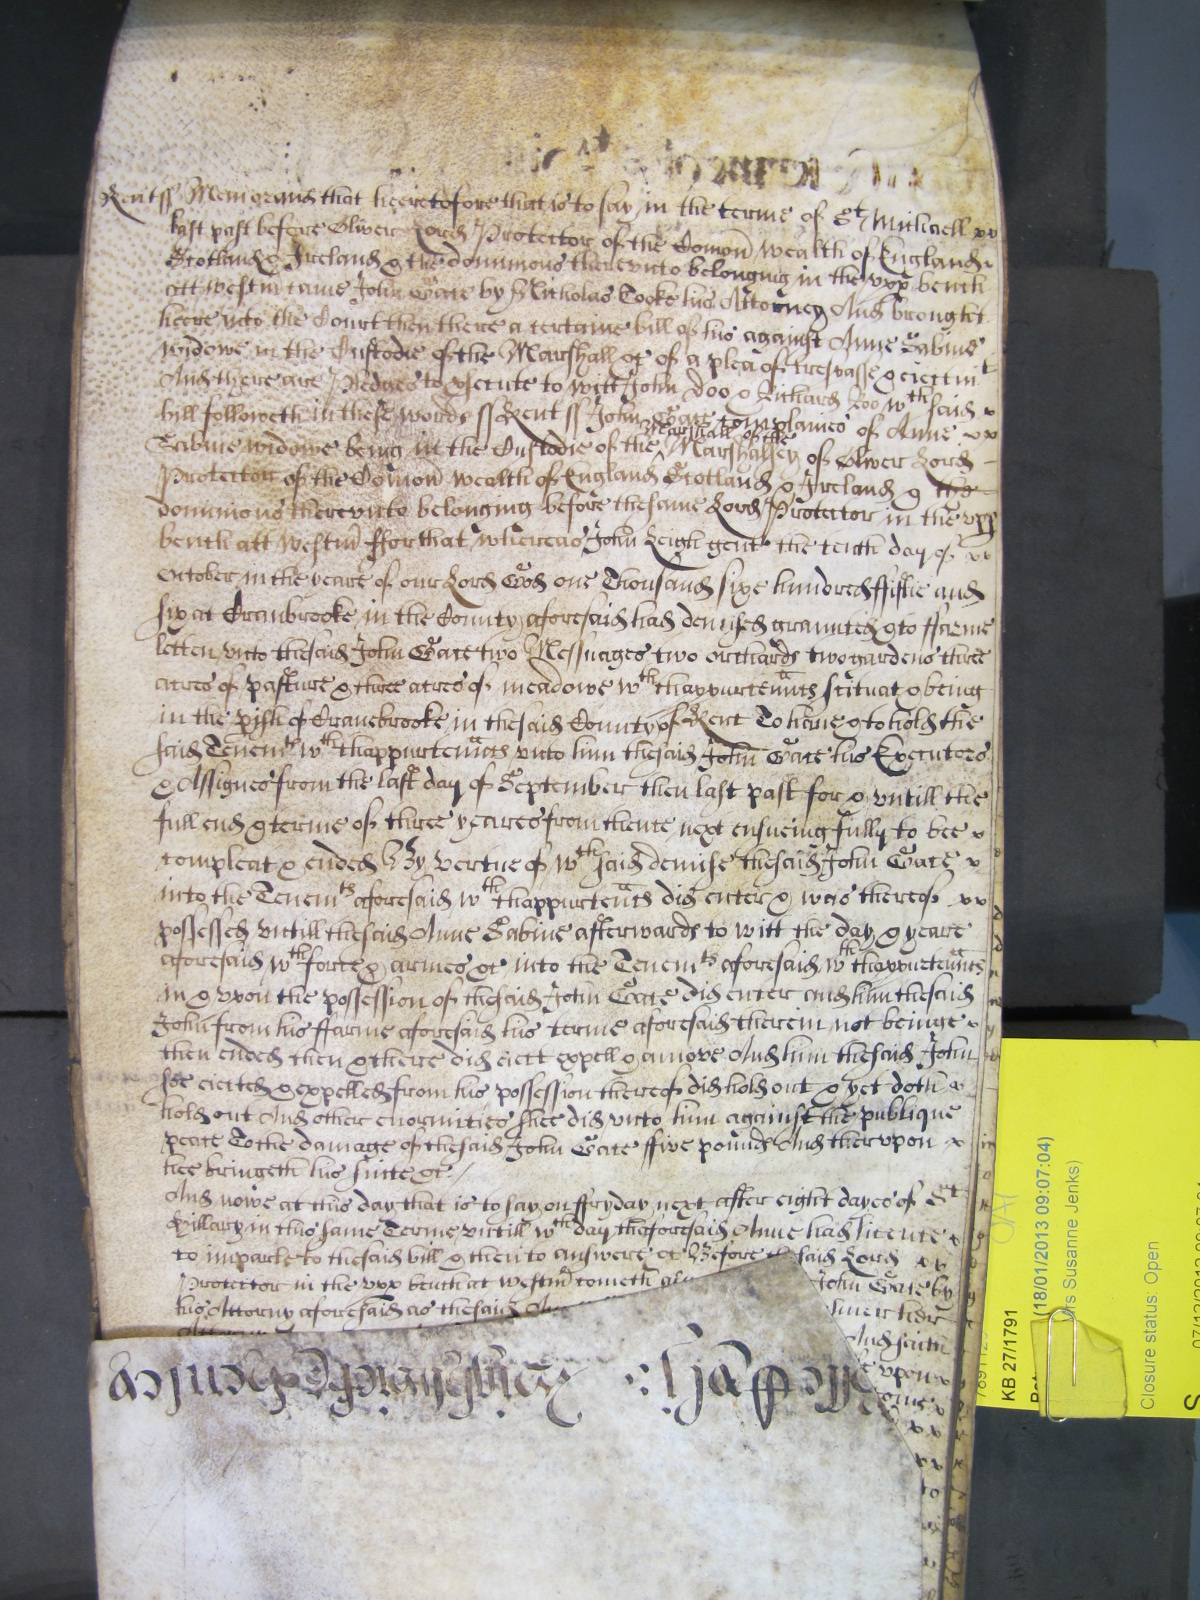 Kent ss Memorand that heeretofore that is to say in the terme of St Michaell
last past before Oliver Lord Protector of the Comon wealth of England
Scotland & Ireland & the dominions therevnto belonging in the vpp bench
att westm came John Gate by Nicholas Cooke his Attorney And brought
heere into the Court then there a certaine bill of his against Anne Sabine
widowe in the Custodie of the Marshall &c of a plea of trespasse & eiectmt
And there are Pledges to psecute to witt John Doo & Richard Roo wch said
bill followeth in these words ss Kent ss John Gate complaines of Anne
Marshall of the
Sabine widowe being in the Custodie of the Marshalsey of Oliver Lord
Protector of the Comon wealth of England Scotland & Ireland & the
dominions therevnto belonging before the same Lord Protector in the vpp
bench att westm ffor that whereas John Leigh gent the tenth day of
October in the yeare of our Lord God one Thousand sixe hundred ffiftie and
six at Cranbrooke in the County aforesaid had demised graunted & to ffarme
letten vnto the said John Gate two Messuages two orchards two gardens three
acres of pasture & three acres of meadowe wth thappurtenncs scituat & being
in the pish of Cranebrooke in the said County of Kent To have & to hold the
said Tenemts wth thappurtenncs vnto him the said John Gate his Executors
& Assignes from the last day of September then last past for & vntill the
full end & terme of three yeares from thence next ensueing fully to bee
compleat & ended By vertue of wch said demise the said John Gate
into the Tenemts aforesaid wth thappurtenncs did enter & was thereof
possessed vntill the said Anne Sabine afterwards to witt the day & yeare
aforesaid wth force & armes &c into the Tenemts aforesaid wth thappurtennts
in & vpon the possession of the said John Gate did enter and him the said
John from his ffarme aforesaid his terme aforesaid therein not beinge
then ended then & there did eiect expell & amove And him the said John
soe eiected & expelled from his possession thereof did hold out & yet doth
hold out And other enormities shee did vnto him against the publique
peace To the damage of the said John Gate ffive pounds And thervpon
hee bringeth his suite &c
And nowe at this day that is to say on ffryday next after eight dayes of St
Hillary in this same Terme vntill wch day the aforesaid Anne had licence
to imparle to the said bill & then to answere &c Before the said Lord
Protector in the vpp bench at westm cometh John Gate by
his Attorny aforesaid as the said
And saith
vpon
KB 27/1791
(18/01/2013 09:07:04)
Susanne Jenks)
Closure status: Open